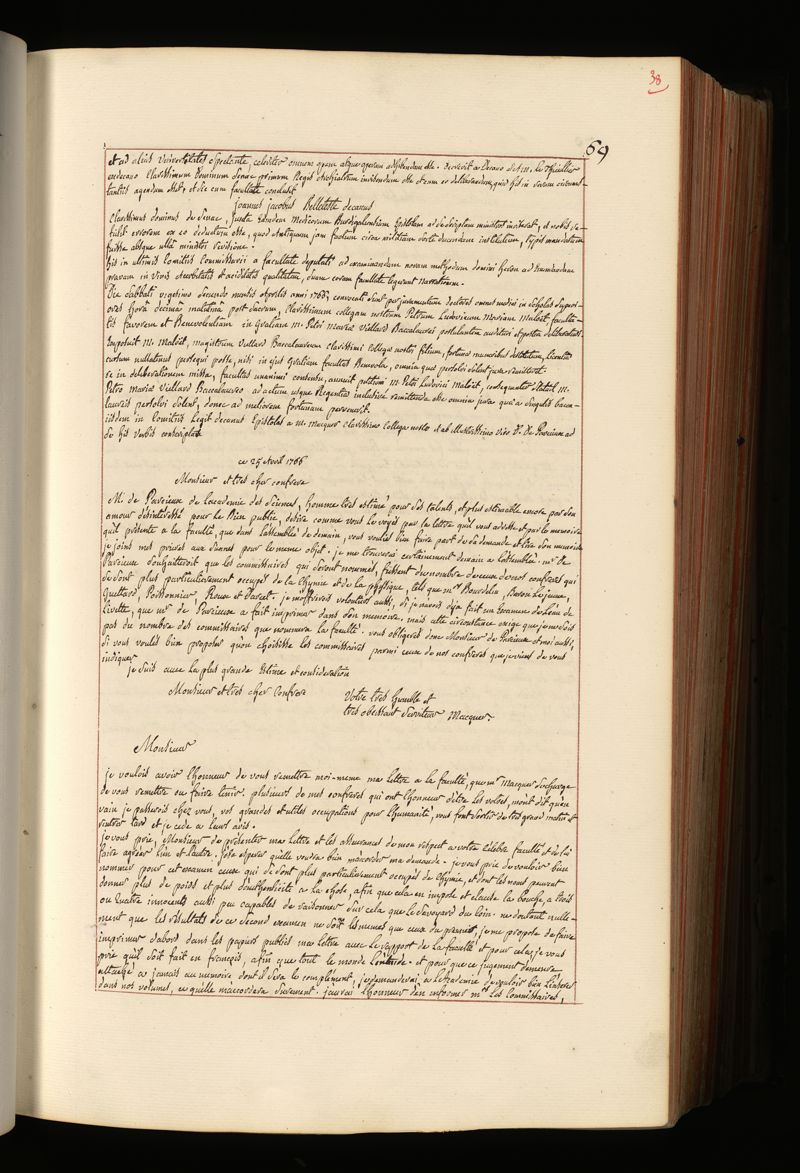 38
69
et ad alias Universitates spectante, celeriter omnem opem atque operam adhibendam esse.
tantis agendum esset, et sic cum facultate conclusit
joannes jacobus Belleteste decanus
Clarissimus dominus de Senac, Medicorum Burdigalensium Epistolam
tulit errorem ex eo deductum esse, quod antiquam jam factum circa
fuisse absque ulla ministri
His in ultimis Comitiis Commissarii a facultate deputati ad examinandam novam methodum domini
pravam in vinis acerbitatis et aciditatis qualitatem, suam coram facultate legerunt narrationem.
Die Sabbati vigesimo secundo mensis aprilis anni 1766, convocati sunt per juramentum doctores omnes medici in Scholas superi-
ores hora decima matutina post sacrum, Clarissimum collegam nostrum Petrum Ludovicum Mariam Maloet, faculta-
tis favorem et Benevolentiam in gratiam M. Petri Mariae Villard Baccalaurei postulantem auditura et postea deliberatura.
Exposuit M. Maloet, magistrum Villard Baccalaureum Clarissimi Collegae nostri filium, fortunae muneribus destitutum, licentiae
cursum nullatenus persequi posse, nisi in ejus gratiam facultas Benevola, omnia quae persolvi solent jura remitteret.
re in deliberationem missa, facultas unanimi consensu, annuit petitioni M. Petri Ludovici Maloet, consequenter statuit M.
Petro Mariae Villard Baccalaureo ad actum usque Regentiae inclusive remittenda esse omnia jura quae a singulis bacca-
laureis persolvi solent, donec ad meliorem fortunam pervenerit.
iisdem in Comitiis Legit decanus Epistolas a M. Macquer Clarissimo Collega nostro et ab illustrissimo viro D. De Parcieux ad
se his verbis conscriptas
ce 25 avril 1766
Monsieur et tres cher confrere
M. de Parcieux de lacademie des Sciences, homme tres estimé pour ses talents, et plus estimable encore par son
amour désintéressé pour le Bien public, desire comme vous le voyez par la lettre quil vous adresse et par le memoire
quil présente a la faculté, que dans lassemblée de demain, vous vouliez bien faire part de sa demande et lire son memoire
je joins mes prieres aux siennes pour le meme objet. je me trouverai certainement demain a lassemblée. mr. De
Parcieux souhaiteroit que les committaires qui seront nommés, fussent du nombre de ceux de nos confreres qui
se sont plus particulièrement occupés de la chymie et de la physique, tels que mrs Bourdelin, Baron Lejeune,
Guettard, Poissonnier, Roux et Darcet. je m'offrirois volontiers aussi, si je navois deja fait un Examen de Leau de
Livette, que mr. de Parcieux a fait imprimer dans son memoire. mais cette circonstance exige que je ne sois
pas du nombre des committaires que nommera la faculté. vous obligerez donc Monsieur de Parcieux et moi aussi,
si vous voulez bien proposer quon choisisse les committaires parmi ceux de nos confreres que je vient de vous
indiquer
je suis avec la plus grande Estime et consideration
Monsieur et tres cher Confrere
Votre tres humble et
tres obeissant serviteur Macquer
Monsieur
je voulois avoir lhonneur de vous remettre moi-meme ma lettre a la faculté, que mr Macquer se charge
de vous remettre ou faire tenir. plusieurs de mes confreres qui ont lhonneur d'être les votres, m'ont dit qu'en
vain je passerois chez vous, vos grandes et utiles occupations pour lhumanité, vous font sortir de tres grand matin et
rentrer tard et je cede a leurs avis.
je vous prie, Monsieur de présenter ma lettre et les assurances de mon respect a votre celebre faculté et de lui
faire agréer lun et lautre. jose esperer qu'elle voudra bien m'accorder ma demande. je vous prie de vouloir bien
nommer pour cet examen ceux qui se sont plus particulierement occupés de Chymie, et dont les noms peuvent
donner plus de poids et plus d'authenticité a la chose, afin que cela en impose et clause la bouche, a trois
ou Quatre innocents aussi peu capables de raisonner sur cela que le savoyard du coin. ne doutant nulle-
ment que les résultats de ce second examen ne soit les memes que ceux du premier, je me propose de faire
imprimer dabord dans les papiers publics ma lettre avec le rapport de la faculté et pour cela, je vous
prie qu'il soit fait en françois, afin que tout le monde l'entende. et pour que ce jugement demeure
attaché a jamais au memoire dont il sera le complément, je demanderai a lacademie de vouloir bien l'inserer
dans nos volumes, ce qu'elle m'accordera surement. j'aurai lhonneur d'en informer mrs Les Committaires,